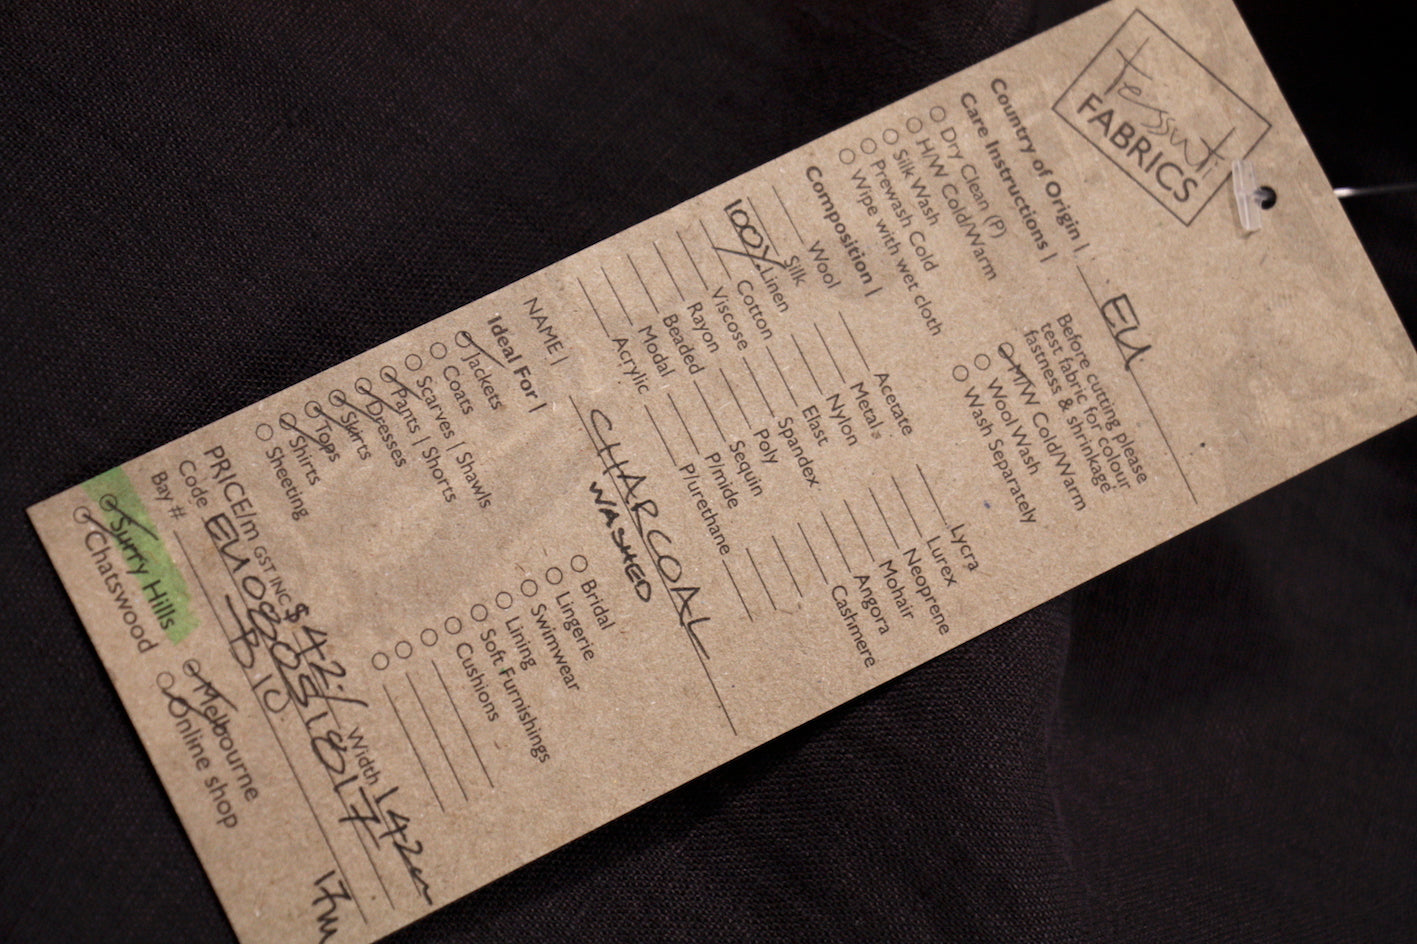 tessuti
FABRICS
Country of Origin | EU
Care Instructions |
Before cutting please
test fabric for colour
fastness & shrinkage
Dry Clean (P)
H/W Cold/Warm
Silk Wash
Prewash Cold
Wipe with wet cloth
M/W Cold/Warm
Wool Wash
Wash Separately
Composition |
Wool Acetate Lycra
Silk Metal Lurex
100% Linen Nylon Neoprene
Cotton Elast Mohair
Viscose Spandex Angora
Rayon Poly Cashmere
Beaded Sequin
Modal P/mide
Acrylic P/urethane
NAME | CHARCOAL
WASHED
Ideal For |
Jackets
Coats
Scarves | Shawls
Pants | Shorts
Dresses
Skirts
Tops
Shirts
Sheeting
Bridal
Lingerie
Swimwear
Lining
Soft Furnishings
Cushions
PRICE/m GST INC $42./ Width 142cm
Code EU080518017
Bay # B10
17m
Surry Hills Melbourne
Chatswood Online shop